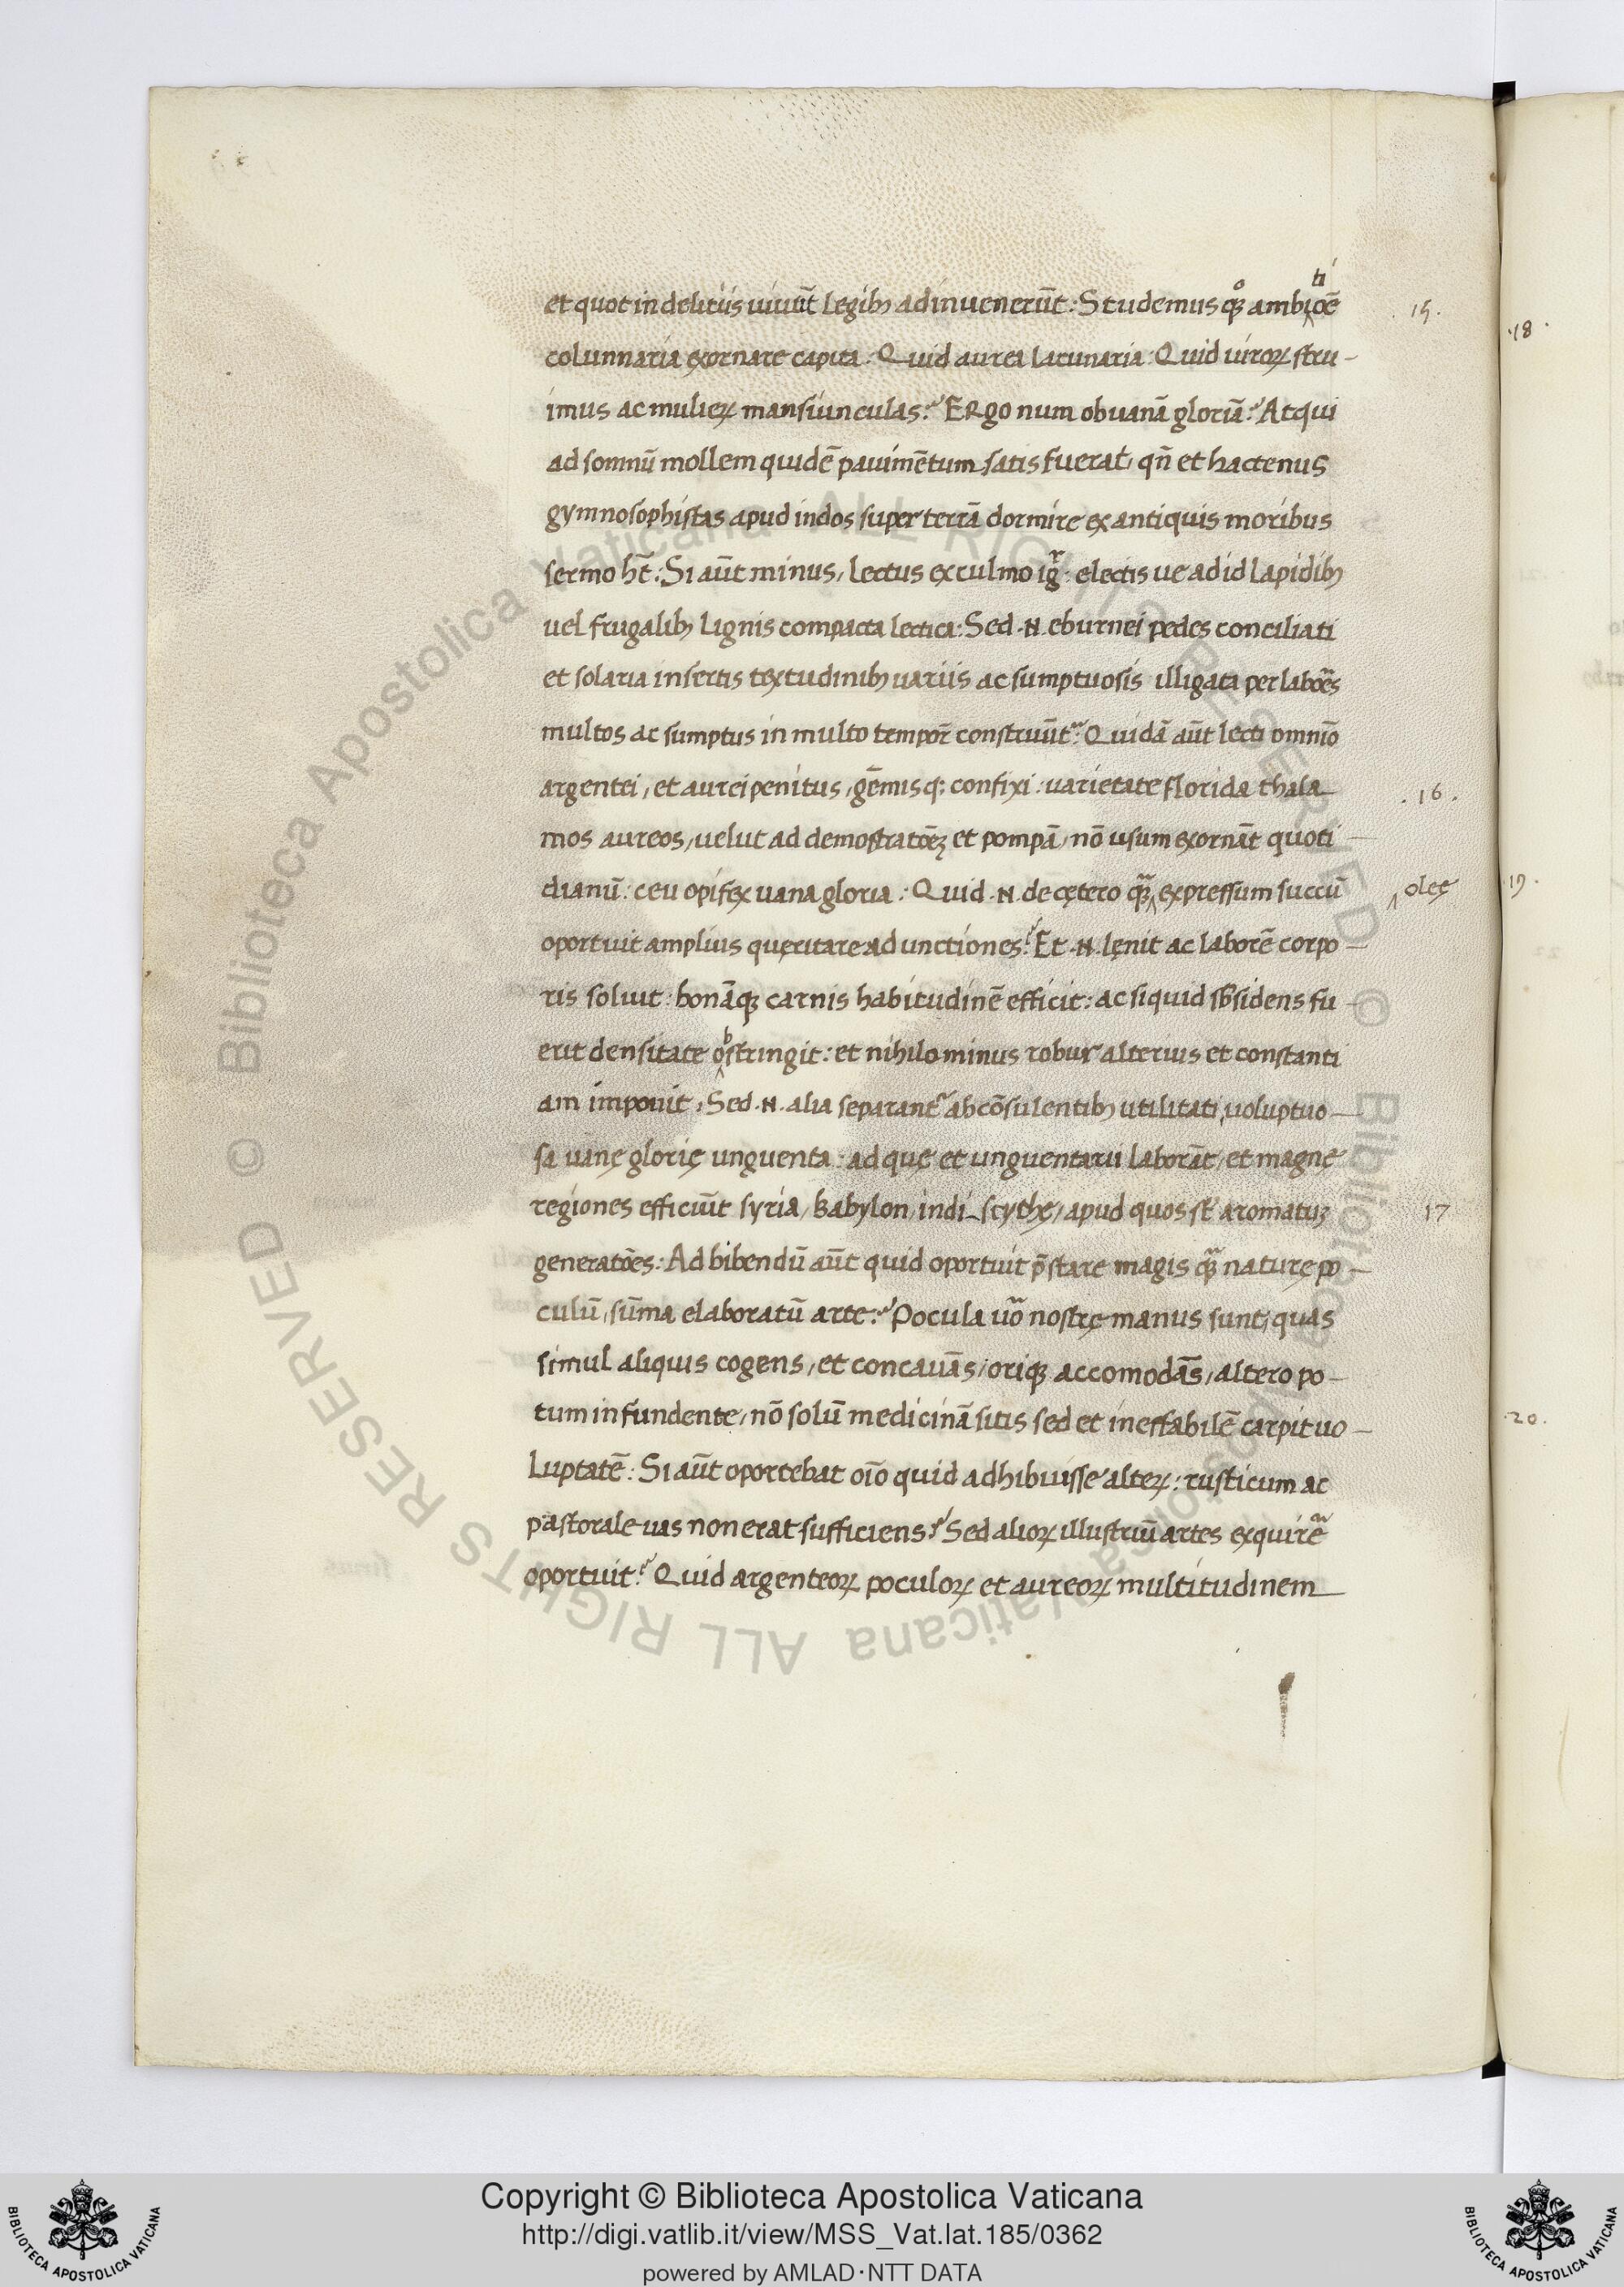 et quot in delitiis uiuũt legib; adinuenerũt: Studemus qꝫͦ ambitiõe
colunnaria exornare capita. Quid aurea lacunaria: Quid uiroꝝ stru-
imus ac mulieꝝ mansiunculas? Ergo num ob uanã gloriã? Atqui
ad somnũ mollem quidẽ pauimẽtum satis fuerat, qñ et hactenus
gymnosophistas apud indos super terrã dormire ex antiquis moribus
sermo ht̃: Si aũt minus, lectus ex culmo igr̃: electis ue ad id lapidib;
uel frugalib; lignis compacta lectica: Sed .N. eburnei pedes conciliati
et solaria insertis textudinib; uariis ac sumptuosis illigata per labõẽs
multos ac sumptus in multo tempor̃ construũt᷑: Quidã aũt lecti omnĩo
argentei, et aurei penitus, gẽmisq; confixi: uarietate florida thala
mos aureos, uelut ad demostratõeꝫ et pompã, nõ usum exornãt quoti-
dianũ: ceu opifex uana gloria: Quid .N. de cętero qꝫᷓ expressum succũ
olеę
oportuit amplius quęritare ad unctiones? Et .N. lęnit ac laborẽ corpo-
ris soluit: bonãqꝫ carnis habitudinẽ efficit: ac siquid sƀsidens fu-
erit densitate obstringit: et nihilominus robur alterius et constanti
am imponit, Sed .N. alia separant᷑ ab cõsulentib; utilitati, uoluptuo-
sa uanę glorię unguenta: ad quę et unguentarii laborãt, et magnę
regiones efficiũt syria, babylon, indi, scythę, apud quos st̃ aromatuꝫ
generatõẽs: Ad bibendũ aũt quid oportuit p̃stare magis qꝫᷓ naturę po-
culũ, sũma elaboratũ arte? Pocula uõ nostrę manus sunt, quas
simul aliquis cogens, et concauãs, oriqꝫ accomodãs, altero po-
tum infundente, nõ solũ medicinã sitis sed et ineffabilẽ carpit uo-
luptatẽ: Si aũt oportebat oĩo quid adhibuisse alteꝝ: rusticum ac
pastorale uas non erat sufficiens? Sed alioꝝ illustriũ artes exquirẽ
oportuit? Quid argenteoꝝ poculoꝝ et aureoꝝ multitudinem
15.
.16.
17
.18.
.19.
.20.
Copyright © Biblioteca Apostolica Vaticana
http://digi.vatlib.it/view/MSS_Vat.lat.185/0362
powered by AMLAD·NTT DATA
BIBLIOTECA APOSTOLICA VATICANA
BIBLIOTECA APOSTOLICA VATICANA
© Biblioteca Apostolica Vaticana ALL RIGHTS RESERVED © Biblioteca Apostolica Vaticana ALL RIGHTS RESERVED